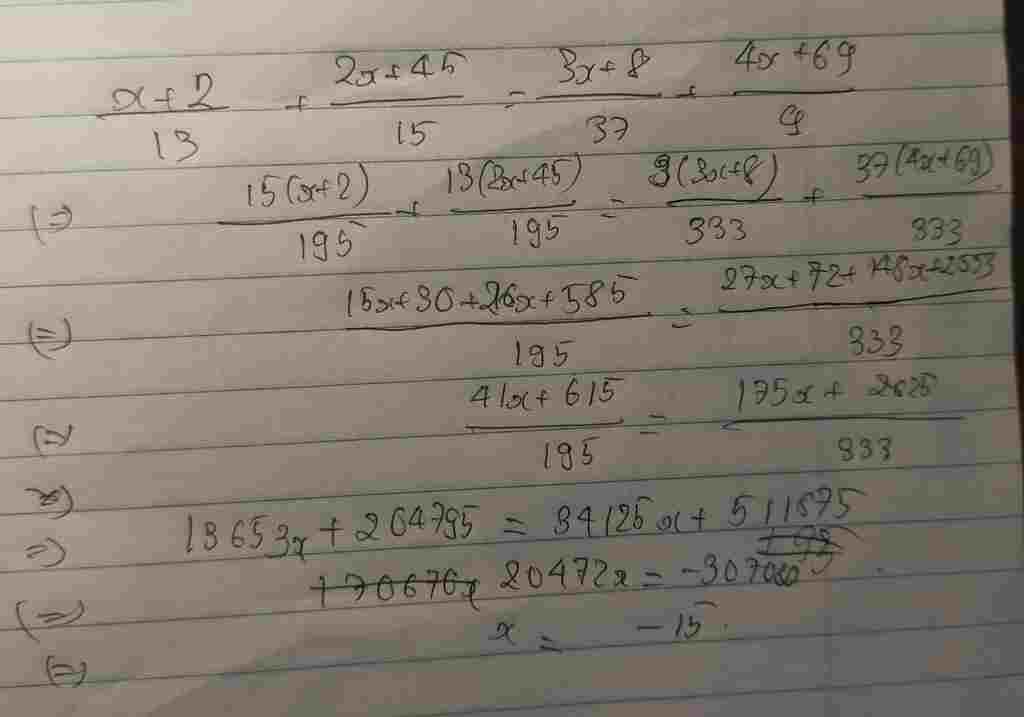 x+2/13 + 2x+45/15 = 3x+8/37 + 4x+69/9
(=) 15(x+2)/195 + 13(2x+45)/195 = 9(3x+8)/333 + 37(4x+69)/333
(=) 15x+30+26x+585/195 = 27x+72+148x+2553/333
(=) 41x+615/195 = 175x+2625/333
=) 13653x+204795 = 34125x+511875
(=) 20472x = -307080
(=) x = -15.